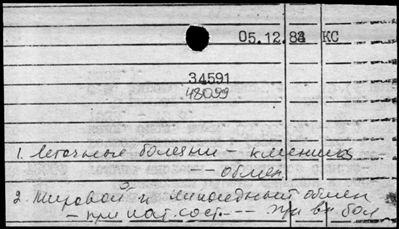 05.12.83 КС
34591
48099
1. Легочные болезни - клиника
-- обмен
2. Жировой и липоидный обмен
- при пат. сост. --- при вн бол